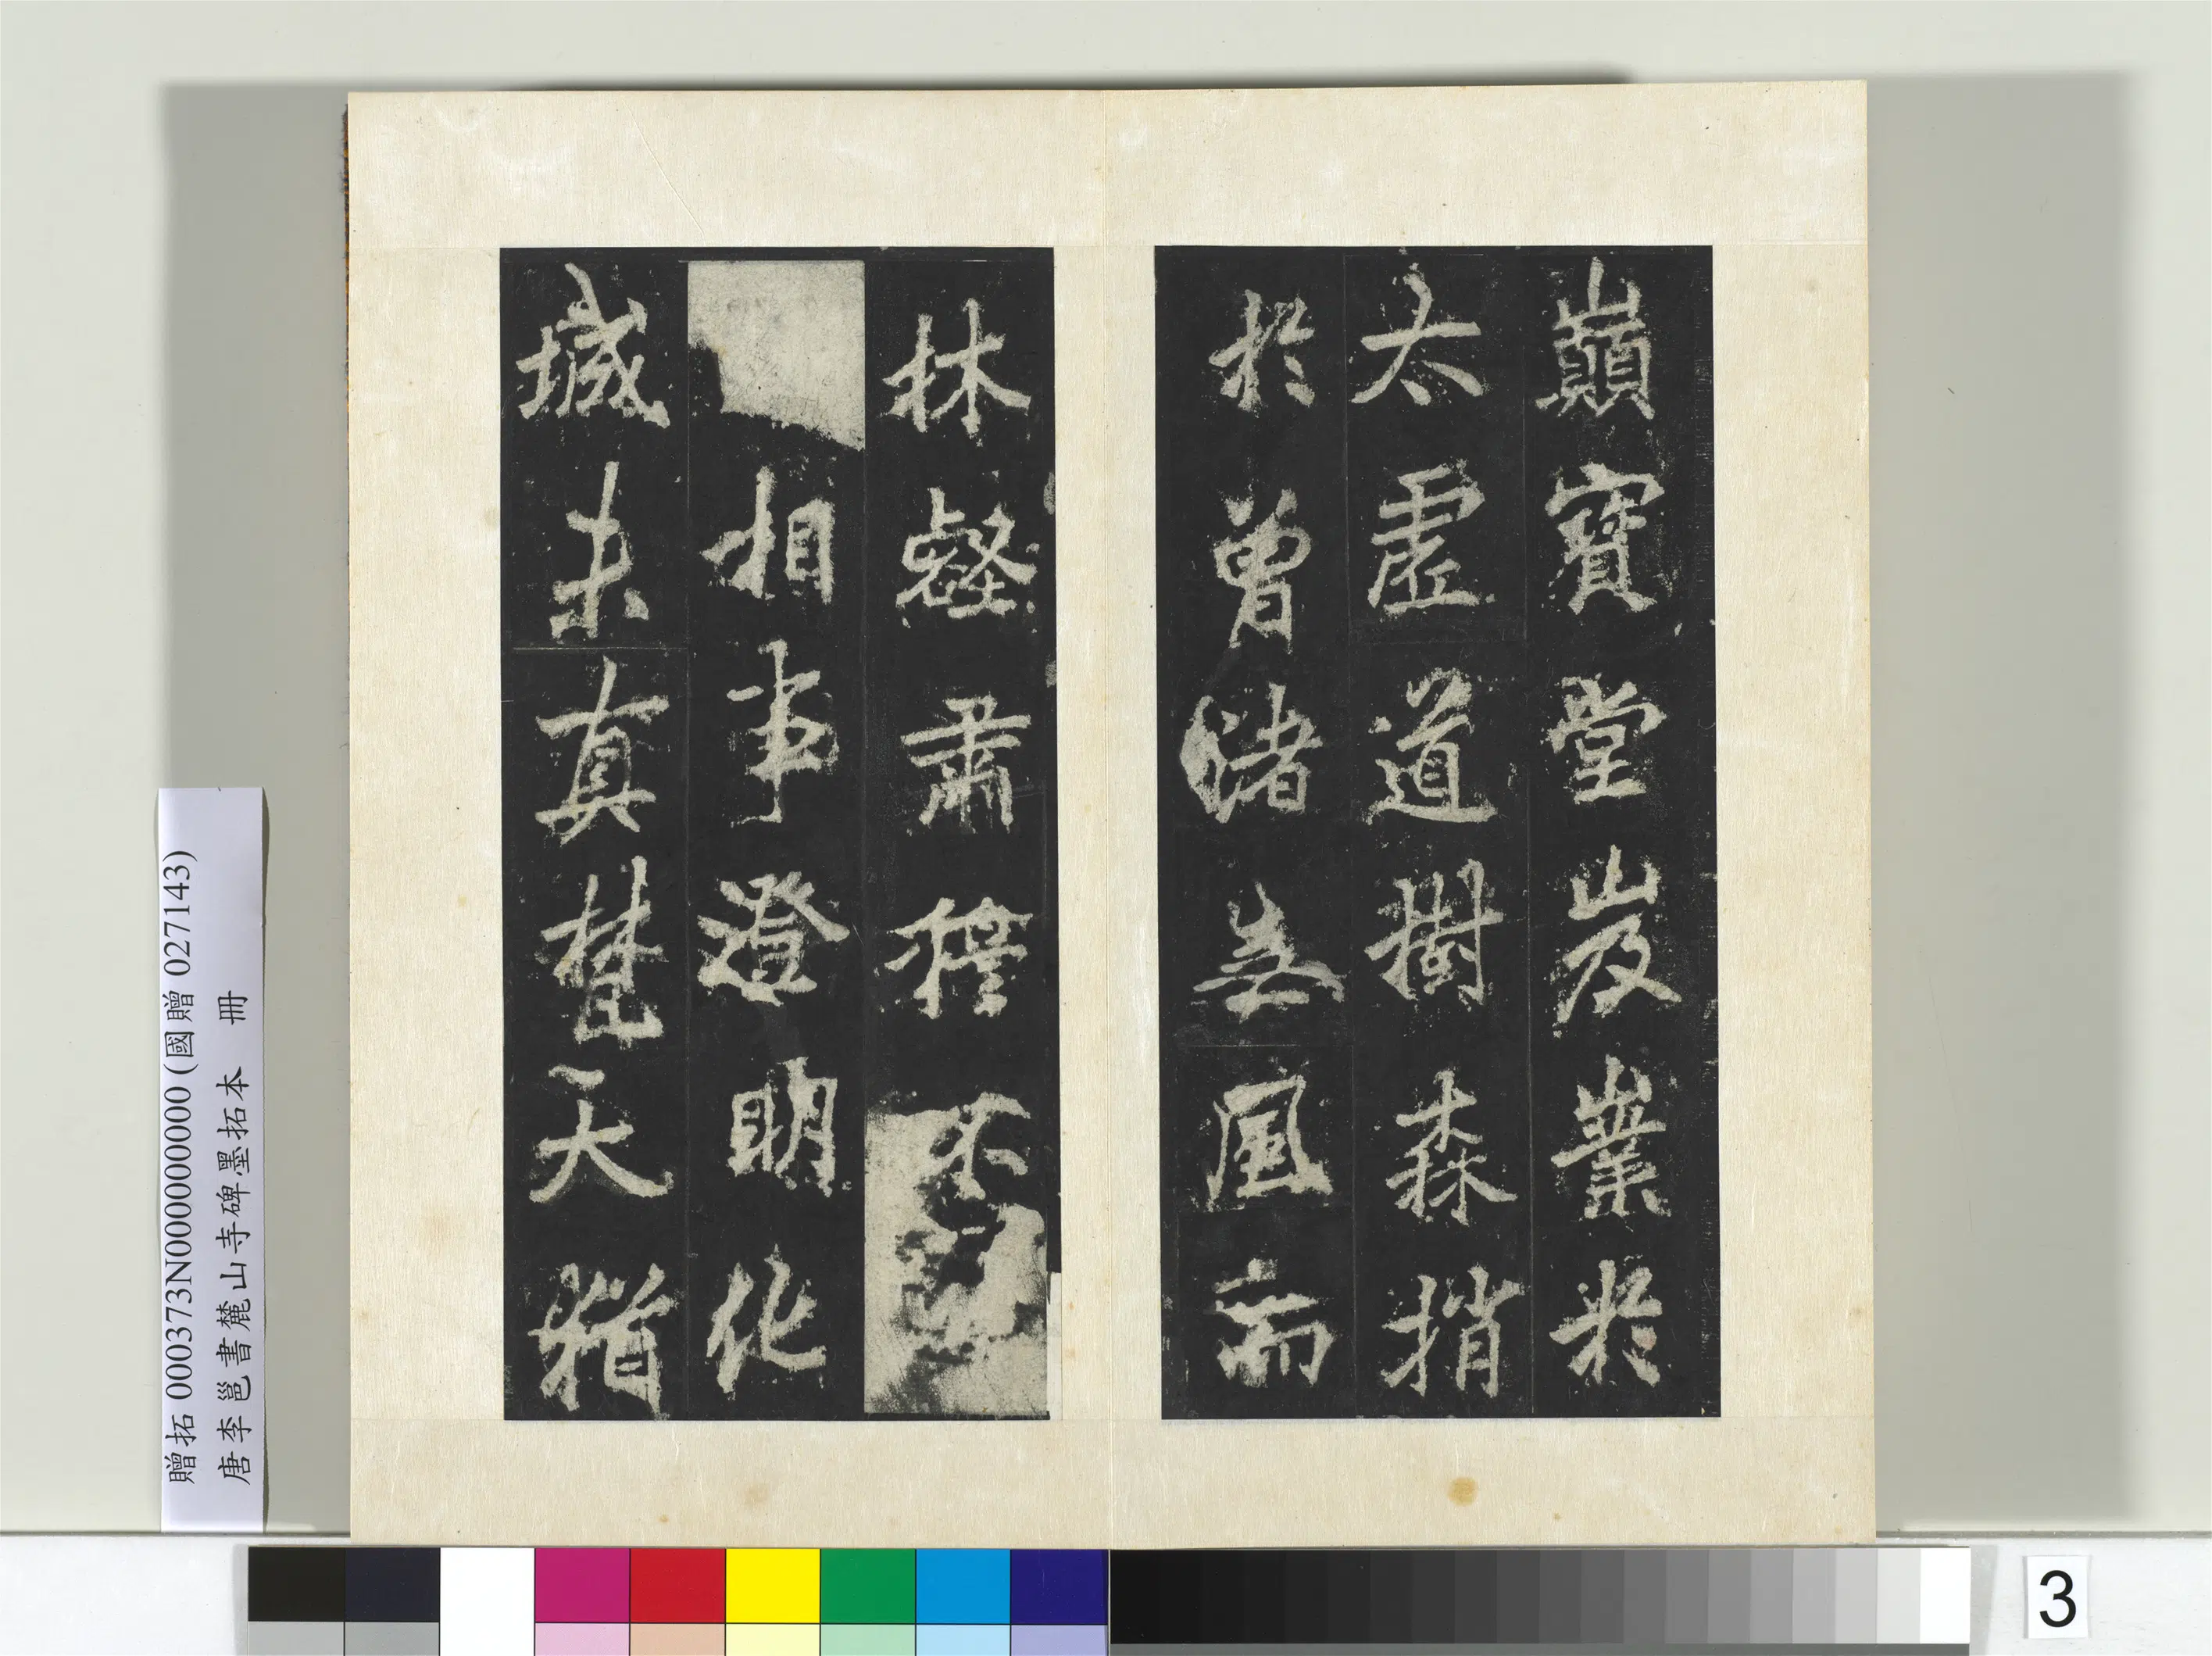 巔寶堂岌業於
太虛道樹森捎
於曾渚無風而
林壑肅穆不
相事澄明化
城未真梵天猶
贈拓 000373N000000000 (國贈 027143)
唐李邕書麓山寺碑墨拓本 冊
3